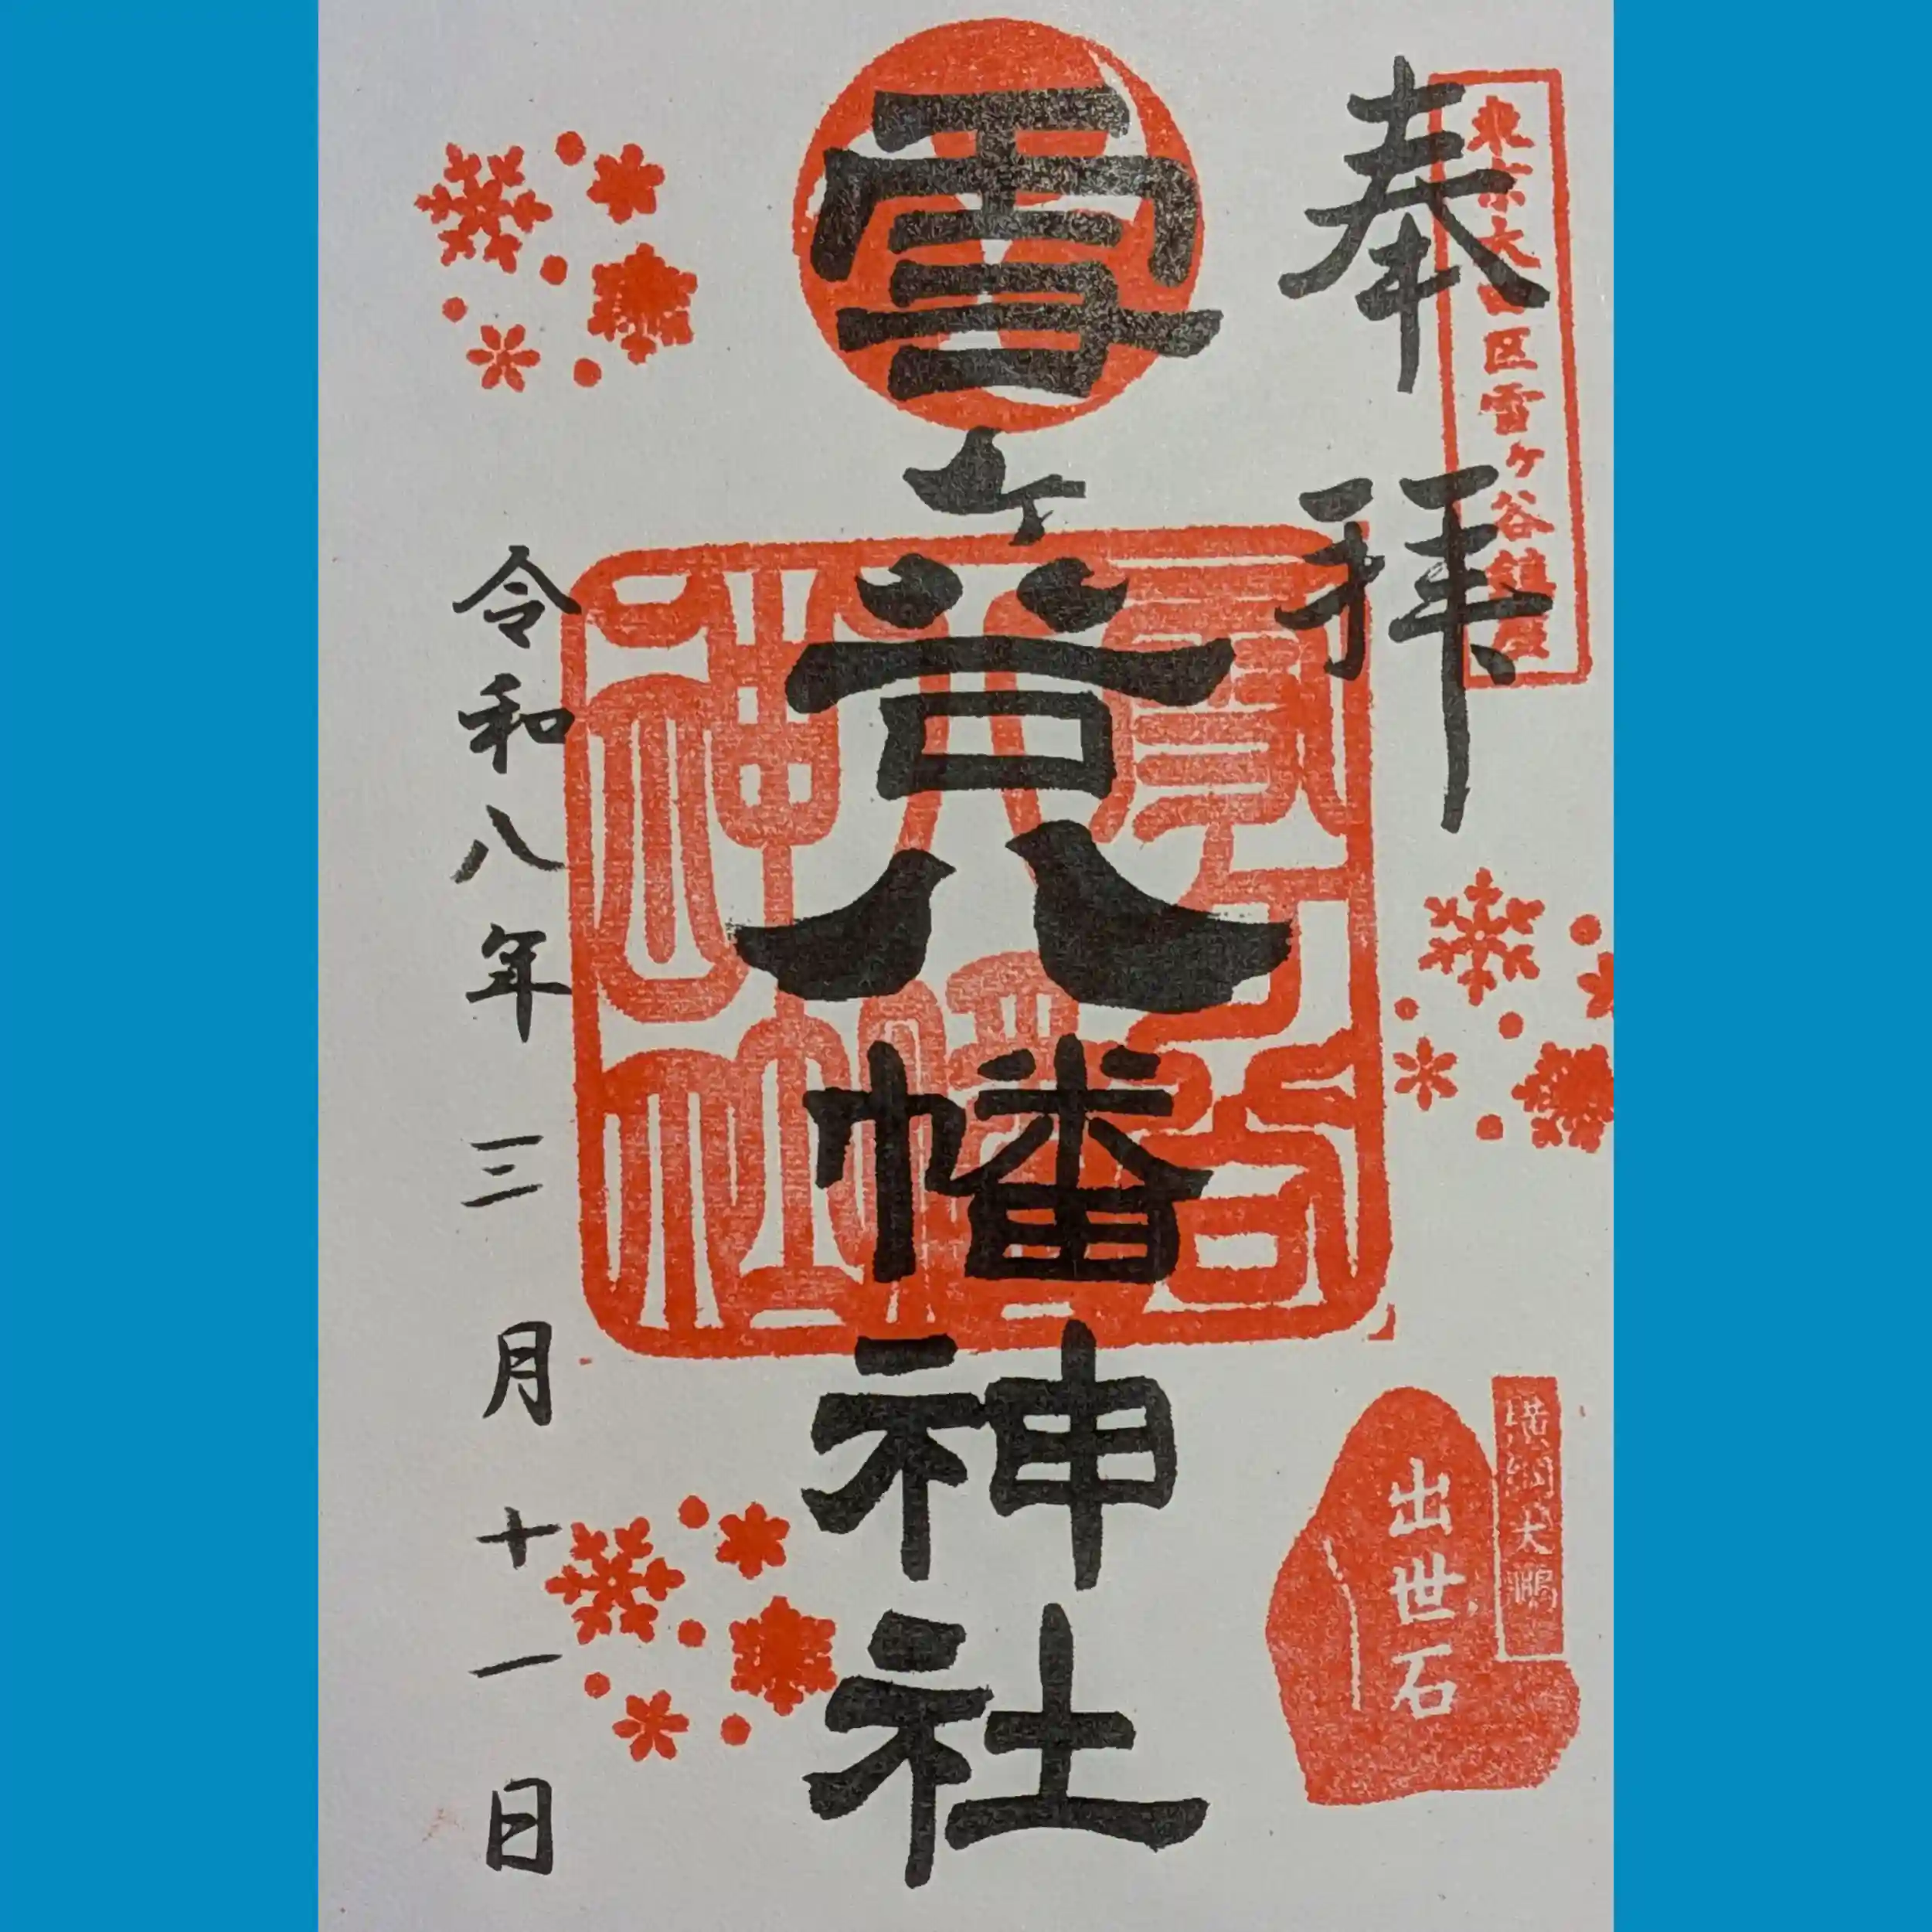 奉拝
東京大田区雪ヶ谷鎮座
雪ヶ谷八幡神社
令和八年三月十一日
横綱大鵬
出世石